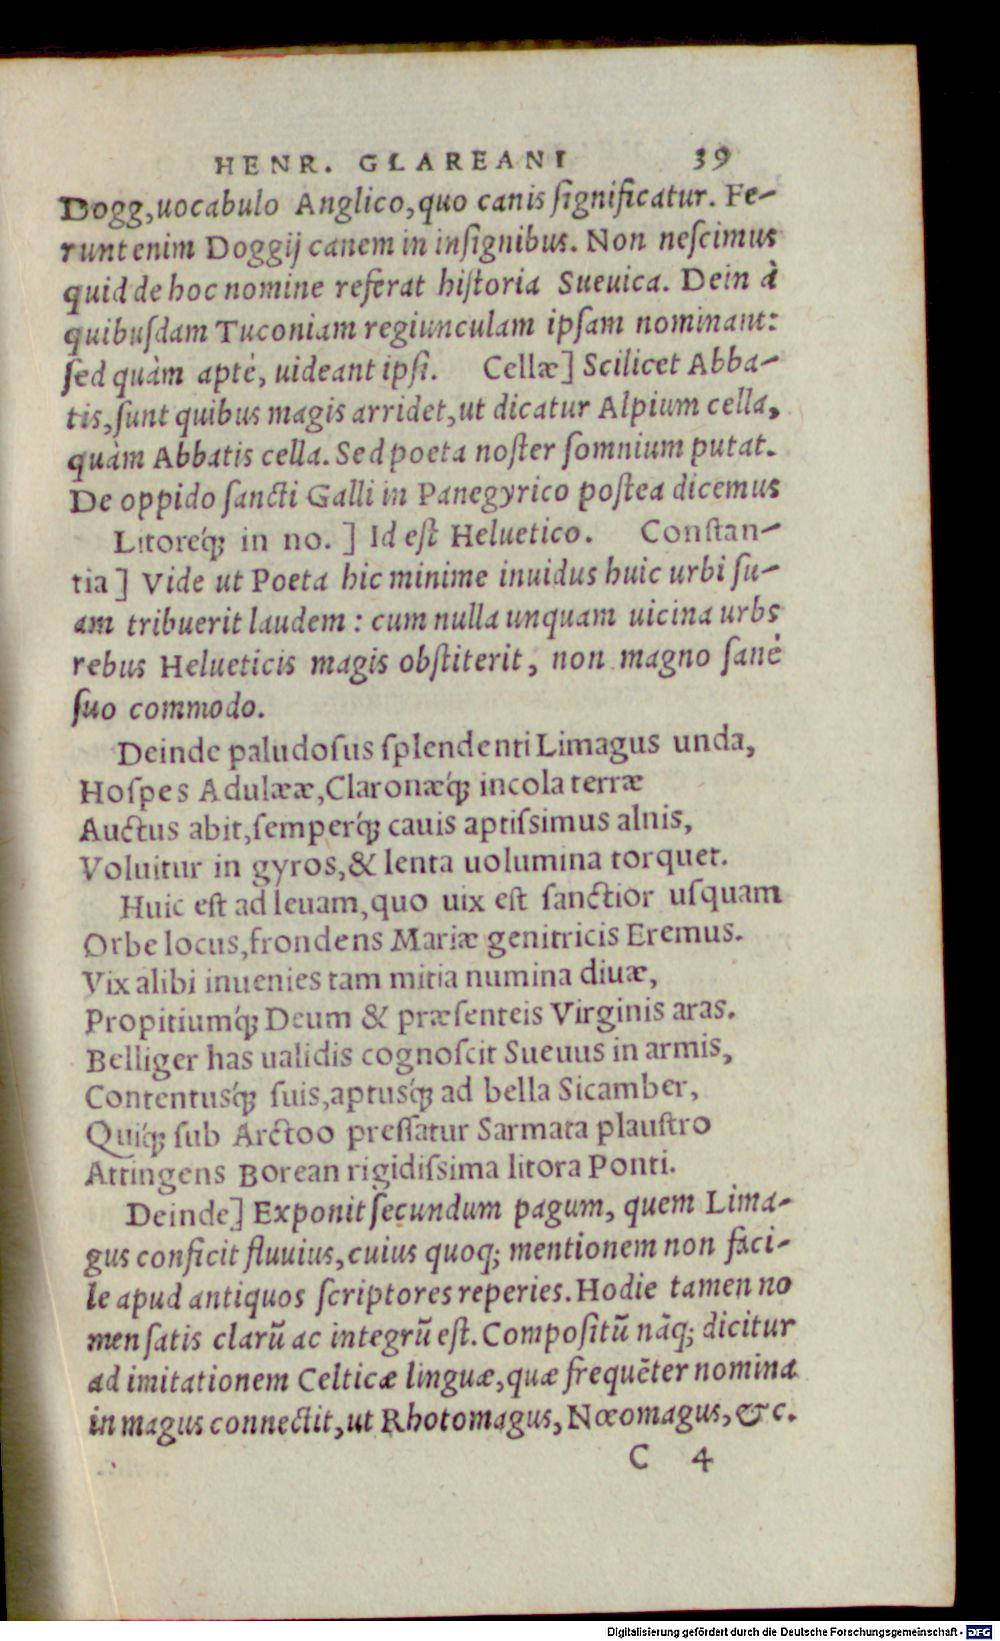 HENR. GLAREANI 39
Dogg, uocabulo Anglico, quo canis ſignificatur. Fe-
runt enim Doggij canem in inſignibus. Non neſcimus
quid de hoc nomine referat hiſtoria Sueuica. Dein à
quibuſdam Tuconiam regiunculam ipſam nominant:
ſed quàm aptè, uideant ipſi. Cellæ] Scilicet Abba-
tis, ſunt quibus magis arridet, ut dicatur Alpium cella,
quàm Abbatis cella. Sed poeta noſter ſomnium putat.
De oppido ſancti Galli in Panegyrico poſtea dicemus
Litoreq́ꝫ in no. ] Id eſt Heluetico. Conſtan-
tia] Vide ut Poeta hic minime inuidus huic urbi ſu-
am tribuerit laudem : cum nulla unquam uicina urbs
rebus Helueticis magis obſtiterit, non magno ſanè
ſuo commodo.
Deinde paludoſus ſplendenti Limagus unda,
Hoſpes Adulææ, Claronæq́ꝫ incola terræ
Auctus abit, ſemperq́ꝫ cauis aptiſsimus alnis,
Voluitur in gyros, & lenta uolumina torquet.
Huic eſt ad leuam, quo uix eſt ſanctior uſquam
Orbe locus, frondens Mariæ genitricis Eremus.
Vix alibi inuenies tam mitia numina diuæ,
Propitiumq́ꝫ Deum & præſenteis Virginis aras.
Belliger has ualidis cognoſcit Sueuus in armis,
Contentusq́ꝫ ſuis, aptusq́ꝫ ad bella Sicamber,
Quiq́ꝫ ſub Arctoo preſſatur Sarmata plauſtro
Attingens Borean rigidiſsima litora Ponti.
Deinde] Exponit ſecundum pagum, quem Lima-
gus conficit fluuius, cuius quoqꝫ mentionem non faci-
le apud antiquos ſcriptores reperies. Hodie tamen no
men ſatis clarũ ac integrũ eſt. Compoſitũ nãqꝫ dicitur
ad imitationem Celticæ linguæ, quæ frequẽter nomina
in magus connectit, ut Rhotomagus, Nœomagus, &c.
C 4
Digitalisierung gefördert durch die Deutsche Forschungsgemeinschaft - DFG